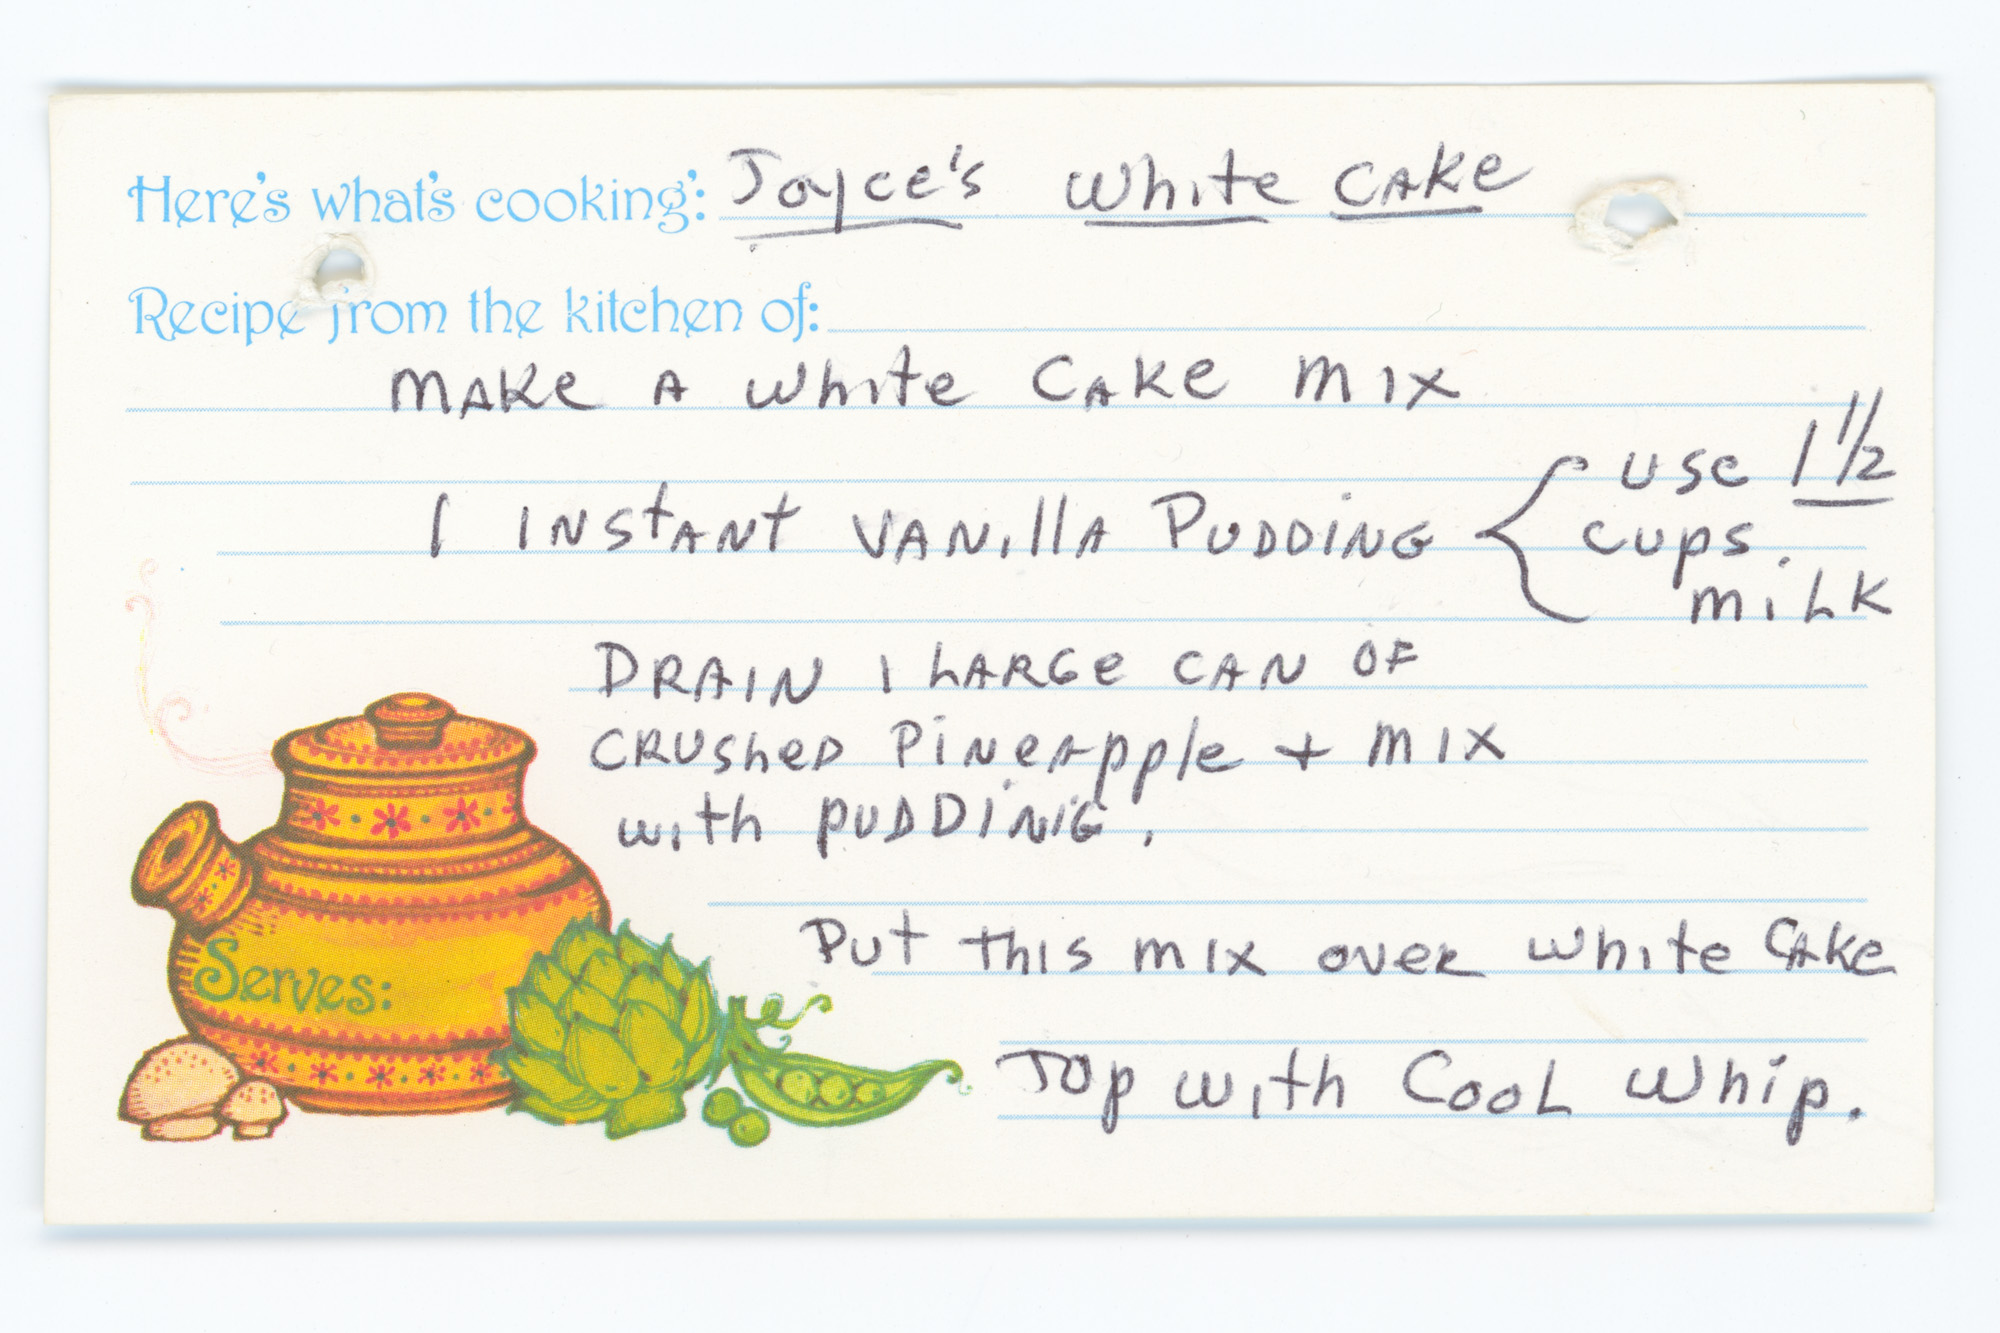 Here's what's cooking: Joyce's White Cake
Recipe from the kitchen of:
Make A White Cake Mix
1 Instant Vanilla Pudding { use 1 1/2
cups
milk
Drain 1 Large Can of
Crushed Pineapple + Mix
with pudding.
Put this mix over White Cake
Serves:
Top with Cool Whip.